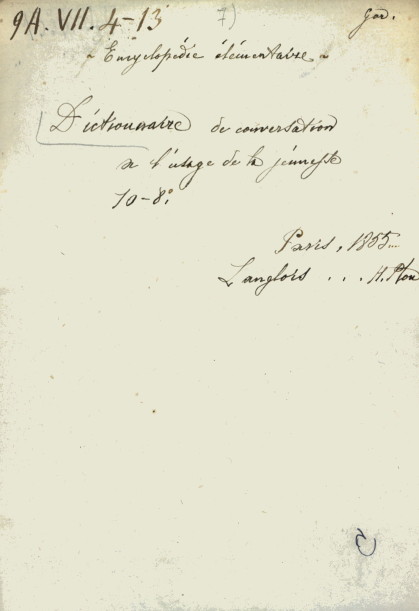 9A. VII. 4-13 7) god.
~ Encyclopédie élémentaire ~
Dictionnaire de conversation
a l'usage de la jeunesse
10-8º
Paris, 1855
Langlois . . . H. Plon
5